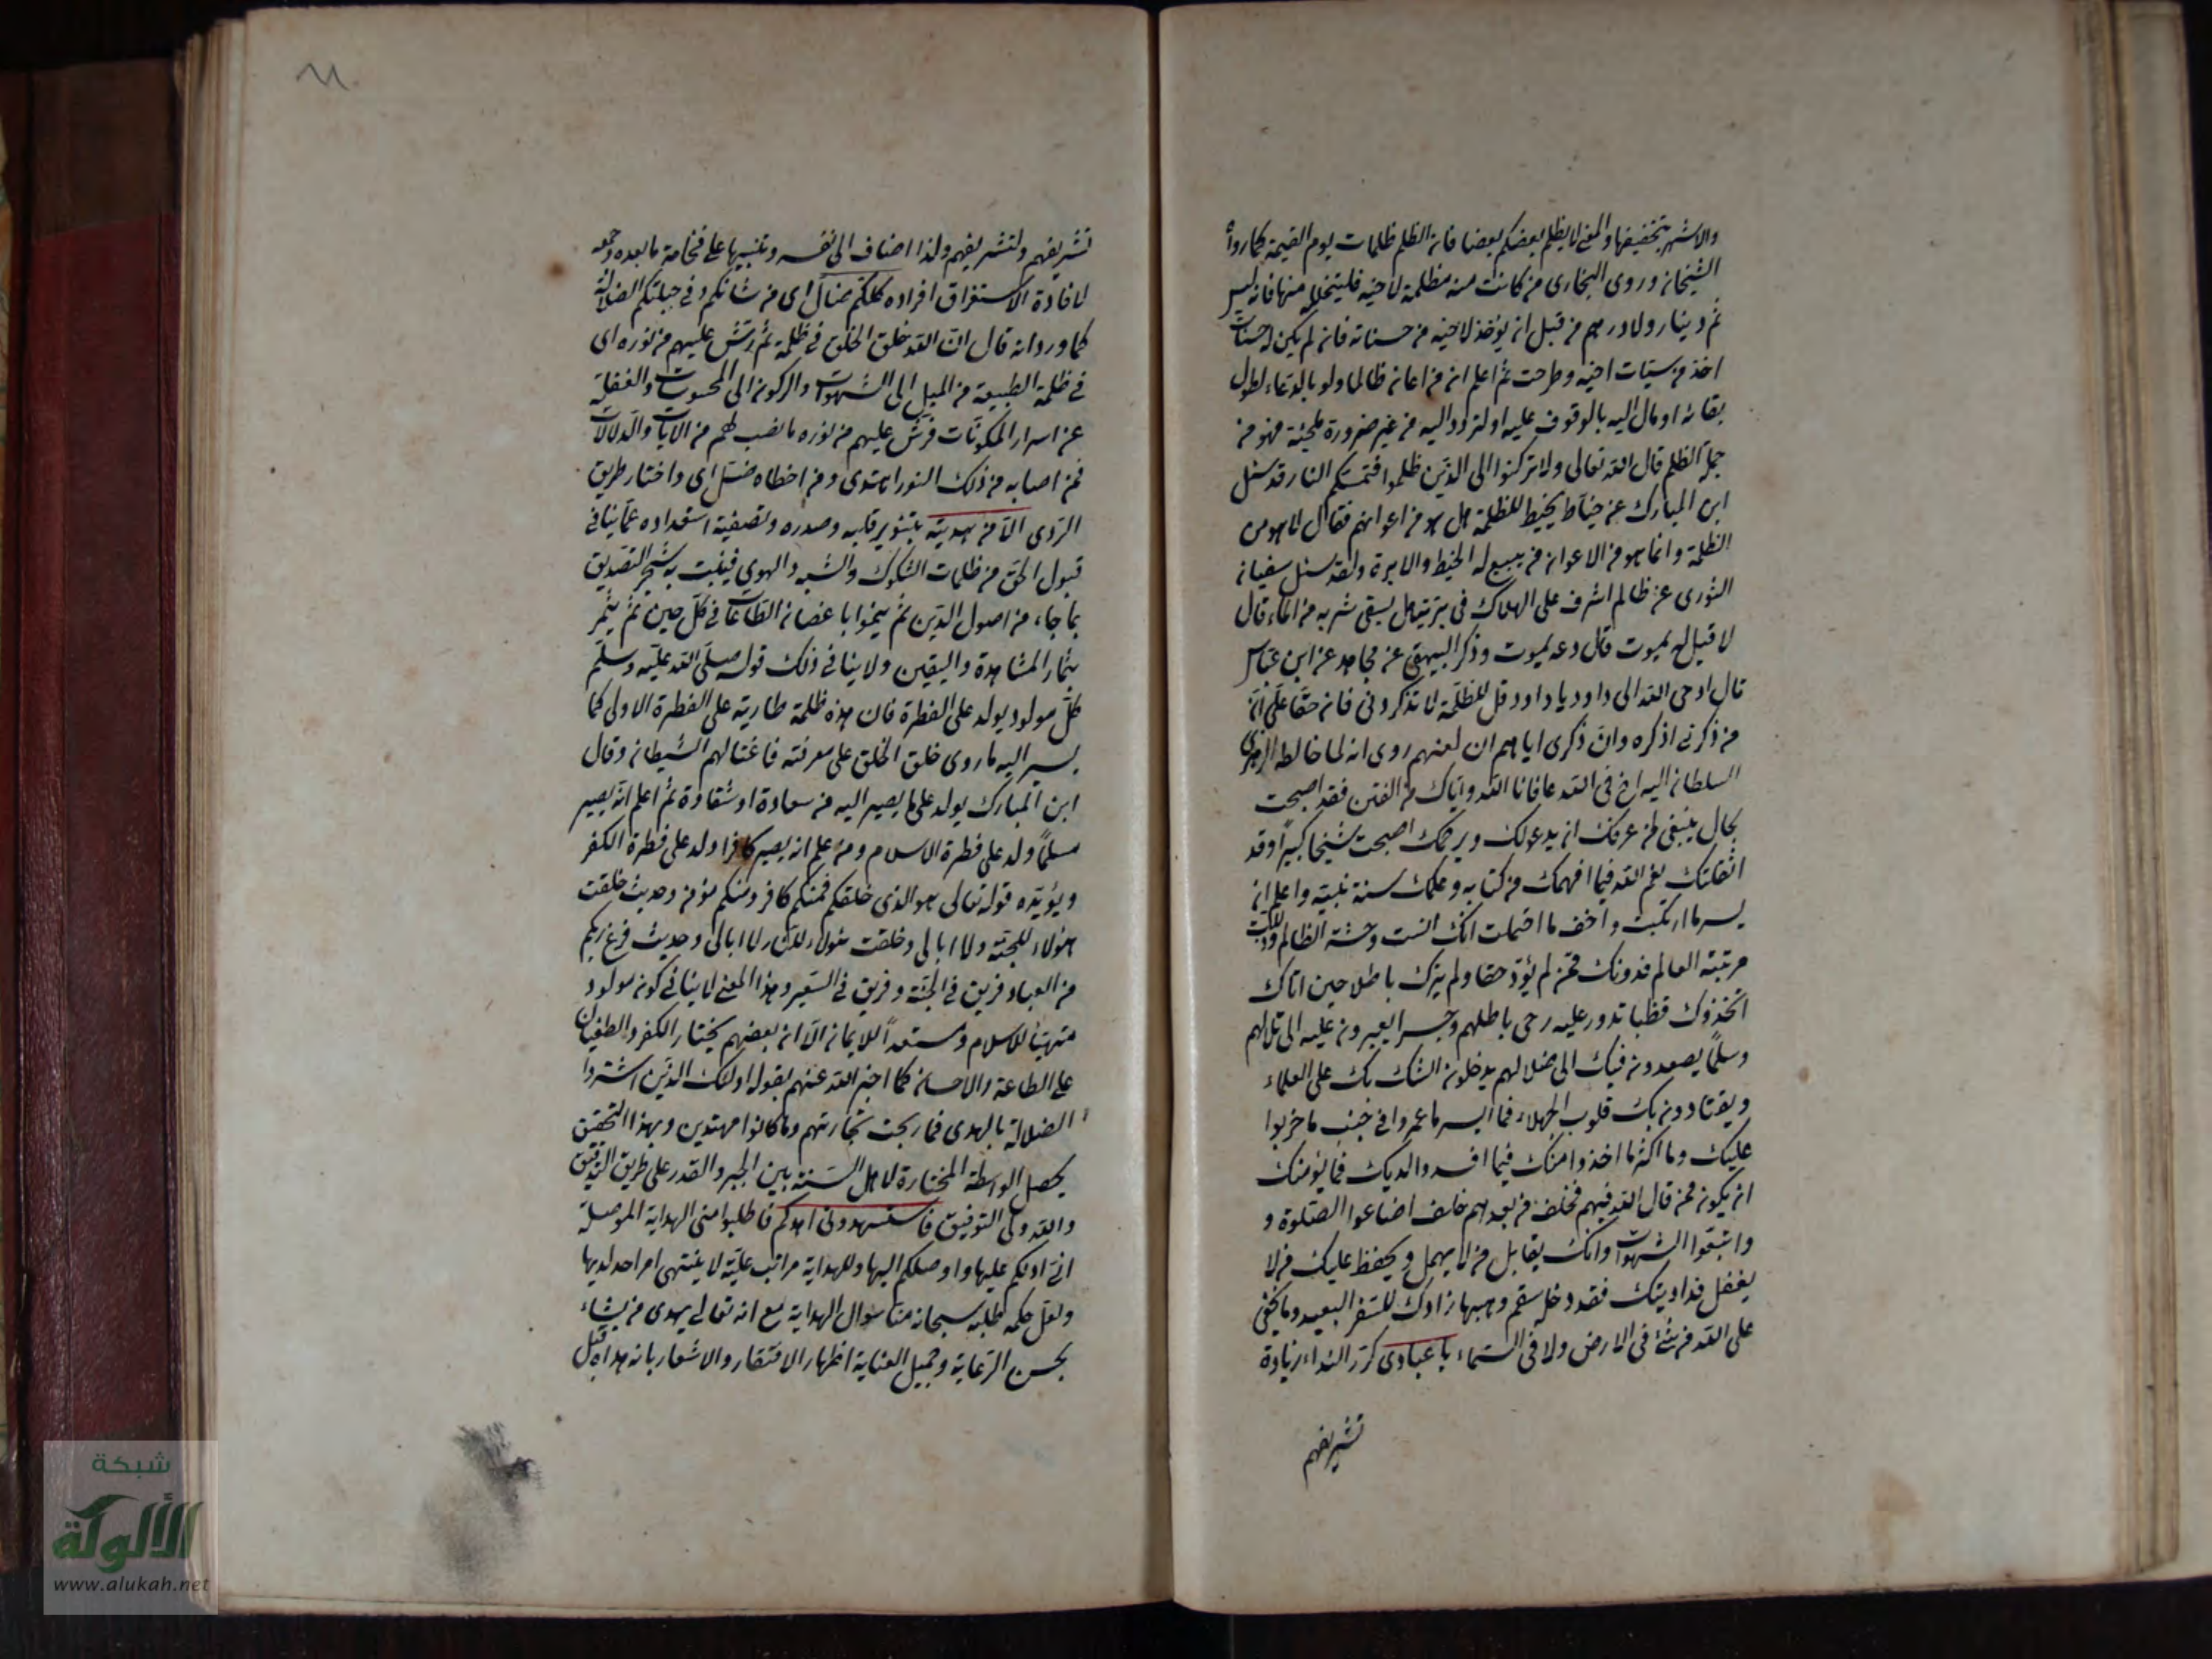 والاشهر تخفيفها والمعنى لا يظلم بعضكم بعضا فان الظلم ظلمات يوم القيمة كما رواه
الشيخان وروى البخارى من كانت عنده مظلمة لاخيه فليتحلله منها فانه ليس
ثم دينار ولا درهم من قبل ان يؤخذ لاخيه من حسناته فان لم يكن له حسنات
اخذ من سيئات اخيه وطرحت ثم اعلم ان من اعان ظالما ولو بالدعاء لطول
بقائه او مال اليه بالوقوف عليه او لتردد اليه من غير ضرورة ملجئة فهو من
جملة الظلم قال الله تعالى ولا تركنوا الى الذين ظلموا فتمسكم النار قد سئل
ابن المبارك عن خياط يخيط للظلمة هل هو من اعوانهم فقال لا هو من
الظلمة وانما هو من الاعوان من يبيع له الخيط والابرة ولقد سئل سفيان
الثورى عن ظالم اشرف على الهلاك فى برية هل يسقى شربه من الماء قال
لا قيل له يموت قال دعه يموت وذكر البيهقى عن مجاهد عن ابن عباس
قال اوحى الله الى داود يا داود قل للظلمة لا تذكرونى فان حقا على ان
من ذكرنى اذكره وان ذكرى اياهم ان لعنهم روى انه لما خالط الزهرى
السلطان اليه اخ فى الله عافانا الله واياك من الفتن فقد اصبحت
بحال ينبغى لمن عرفك ان يدعو لك ويرحمك اصبحت شيخا كبيرا وقد
اثقلتك نعم الله فيما افهمك من كتابه وعلمك سنة نبيه واعلم ان
يسر ما ارتكبت واخف ما احتملت انك انست وحشة الظالم
مرتبة العالم فدونك ممن لم يؤد حقا ولم يترك باطلا حين اتاك
اتخذوك قطبا تدور عليه رحى باطلهم وجسرا يعبرون عليه الى
وسلما يصعدون فيك الى ضلالهم يدخلون الشك بك على العلماء
ويقتادون بك قلوب الجهلاء فما ايسر ما عمروا فى جنب ما خربوا
عليك وما اكثر ما اخذوا منك فيما افسدوا لديك فما يؤمنك
ان يكون ممن قال الله فيهم فخلف من بعدهم خلف اضاعوا الصلوة و
واتبعوا الشهوات وانك يقابل من لا يهمل ويحفظ عليك من لا
يغفل فداو دينك فقد دخل سقم وهيها زادك للسفر البعيد وما يخفى
على الله من شئ فى الارض ولا فى السماء يا عبادى كرر النداء زيادة
تشريفهم
تشريفهم ولتشريفهم ولذا اضاف الى نفسه وتنبيها على فخامة ما بعده وجمعه
لافادة الاستغراق افراده كلكم ضال اى من شانكم وفى جبلتكم الضلالة
كما ورد انه قال ان الله خلق الخلق فى ظلمة ثم رش عليهم من نوره اى
فى ظلمة الطبيعة من الميل الى الشهوات والركون الى المحسوسات والغفلة
عن اسرار المكونات فرش عليهم من نوره ما نصب لهم من الآيات والدلالات
فمن اصابه من ذلك النور اهتدى ومن اخطاه ضل اى واختار طريق
الردى الا من هديته بتنوير قلبه وصدره وتصفية استعداده عما ينافى
قبول الحق من ظلمات الشكوك والشبه والهوى فينبت به شجر التصديق
بما جاء من اصول الدين ثم ينموا باغصان الطاعات فى كل حين ثم يثمر
بثمار المشاهدة واليقين ولا ينافى ذلك قوله صلى الله عليه وسلم
كل مولود يولد على الفطرة فان هذه ظلمة طارية على الفطرة الاولى كما
يسير اليه ما روى خلق الخلق على معرفته فاغتالهم الشيطان وقال
ابن المبارك يولد على ما يصير اليه من سعادة او شقاوة ثم اعلم انه يصير
مسلما ولد على فطرة الاسلام ومن علم انه يصير كافرا ولد على فطرة الكفر
ويؤيده قوله تعالى هو الذى خلقكم فمنكم كافر ومنكم مؤمن وحديث خلقت
هؤلاء للجنة ولا ابالى وخلقت هؤلاء للنار لا ابالى وحديث فرغ ربكم
من العباد فريق فى الجنة وفريق فى السعير وهذا المعنى لا ينافى كونه مولود
متهيئا للاسلام ومستعدا للايمان الا ان بعضهم يختار الكفر والطغيان
على الطاعة والاحسان كما اخبر الله عنهم بقوله اولئك الذين اشتروا
الضلالة بالهدى فما ربحت تجارتهم وما كانوا مهتدين وبهذا التحقيق
يحصل الواسطة المختارة لاهل السنة بين الجبر والقدر على طريق التدقيق
والله ولى التوفيق فاستهدونى اهدكم فاطلبوا منى الهداية الموصلة
انى ادلكم عليها واوصلكم اليها وللهداية مراتب علية لا ينتهى امر احد لديها
ولعل حكمة طلبه سبحانه منا سوال الهداية مع انه تعالى يهدى من يشاء
بحسن الرعاية وجميل العناية اظهار الافتقار والاشعار بانه هداه قبل
شبكة
الألوكة
www.alukah.net